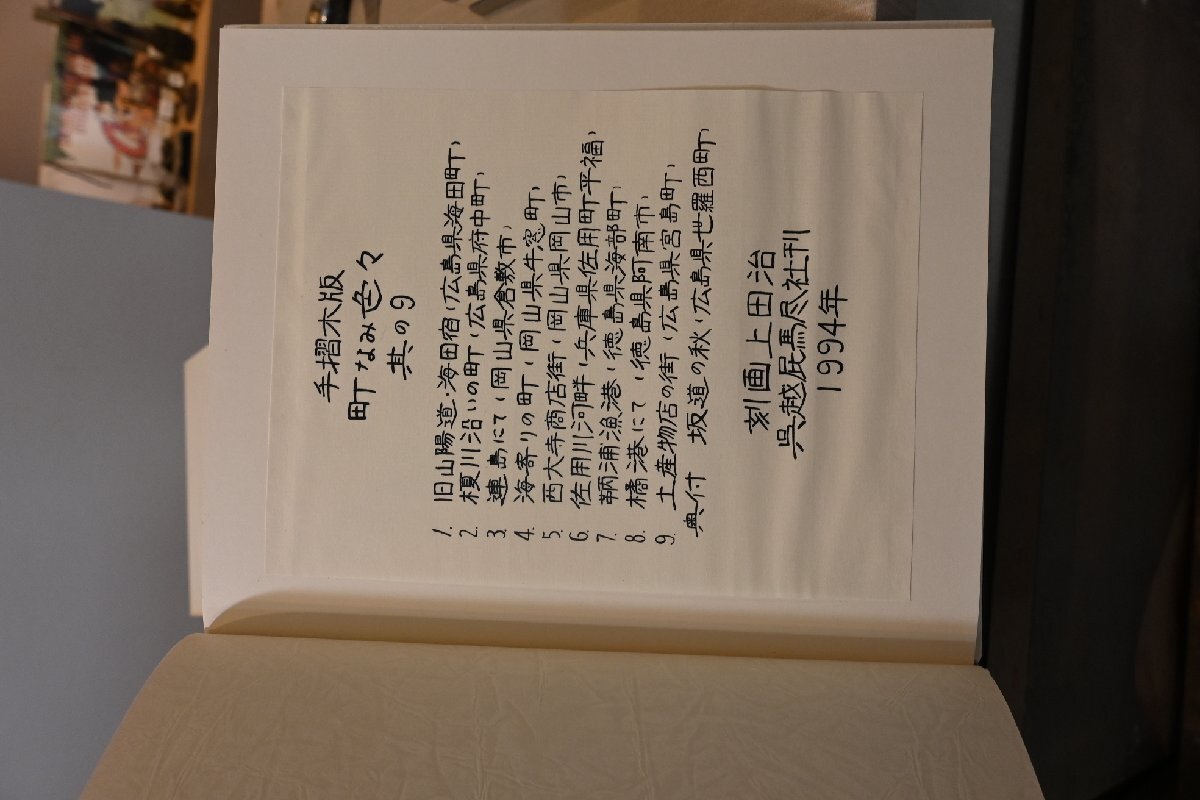 手摺木版
町なみ色々
其の9
1. 旧山陽道・海田宿(広島県海田町)
2. 榎川沿いの町(広島県府中町)
3. 連島にて(岡山県倉敷市)
4. 海寄りの町(岡山県牛窓町)
5. 西大寺商店街(岡山県岡山市)
6. 佐用川河畔(兵庫県佐用町平福)
7. 鞆浦漁港(徳島県海部町)
8. 橘港にて(徳島県阿南市)
9. 土産物店の街(広島県宮島町)
奥付 坂道の秋(広島県世羅西町)
刻画上田治
呉越屁馬尽社刊
1994年